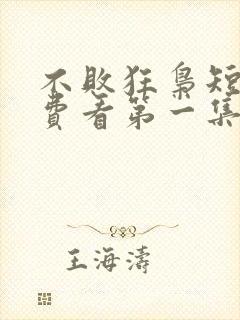 不败狂枭短
费看第一集
王海涛